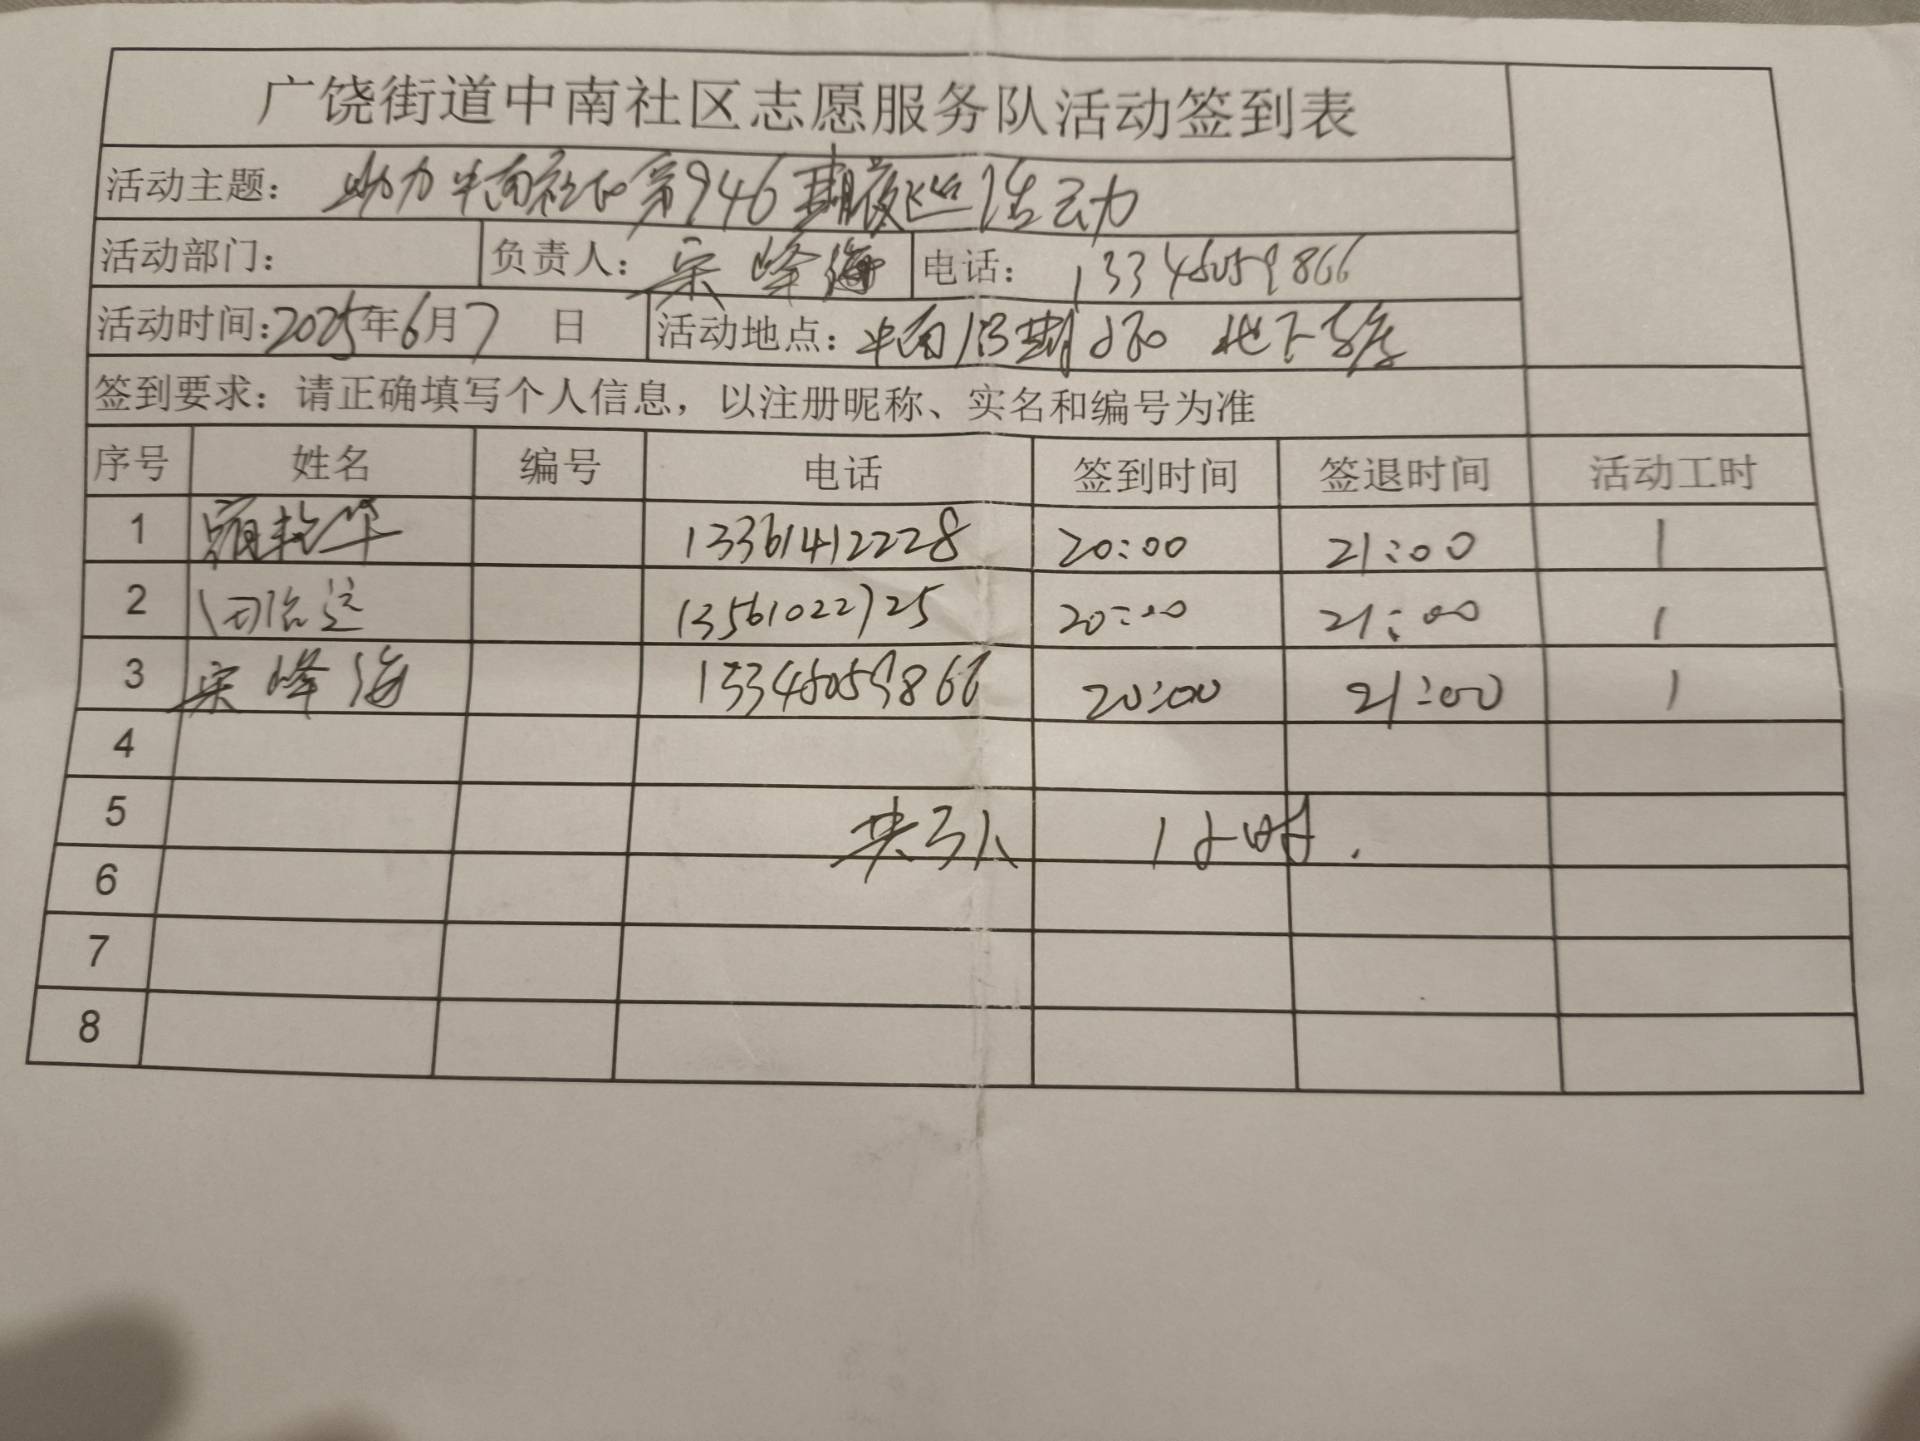 广饶街道中南社区志愿服务队活动签到表
活动主题： 助力中南社区第946期夜巡活动
活动部门： 负责人：宋峰海 电话：13345059866
活动时间：2025年6月7 日 活动地点：中南1 3期 小区 地下车库
签到要求：请正确填写个人信息，以注册昵称、实名和编号为准
序号 姓名 编号 电话 签到时间 签退时间 活动工时
1 华 13361412228 20:00 21:00 1
2 13561022725 20:00 21:00 1
3 宋峰海 13345059866 20:00 21:00 1
4
5 共3人 1小时.
6
7
8